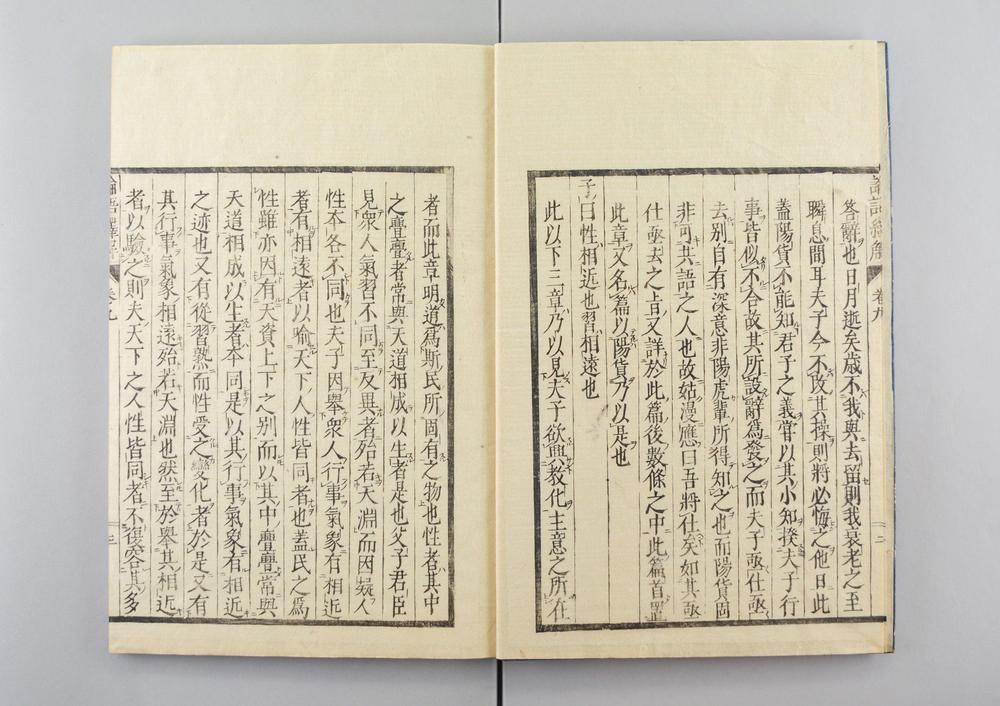 答辭也日月逝矣歲不我與去留則我衰老之至
瞬息間耳夫子今不改其操則將必悔之他日此
蓋陽貨不能知君子之義嘗以其小知揆夫子行
事皆似不合故其所設辭爲發之而夫子亟仕亟
去別自有深意非陽虎輩所得知之也而陽貨固
非可共語之人也故姑漫應曰吾將仕矣如其亟
仕亟去之旨又詳於此篇後數條之中此篇首置
此章又名篇以陽貨乃以是也
子曰性相近也習相遠也
此以下二章乃以見夫子欲興教化主意之所在
者而此章明道爲斯民所固有之物也性者其中
之亹亹者常與天道相成以生者是也父子君臣
見衆人氣習不同至友異者殆若天淵而因疑人
性本各不同也夫子因舉衆人行事氣象有相近
者有相遠者以喻天下人性皆同者也蓋民之爲
性雖亦因有天資上下之別而以其中亹亹常與
天道相成以生者本同是以其行事氣象有相近
之迹也又有從習熟而性受之變化者於是又有
其行事氣象相遠殆若天淵也然至於舉其相近
者以驗之則夫天下之人性皆同者不復容其多
卷九